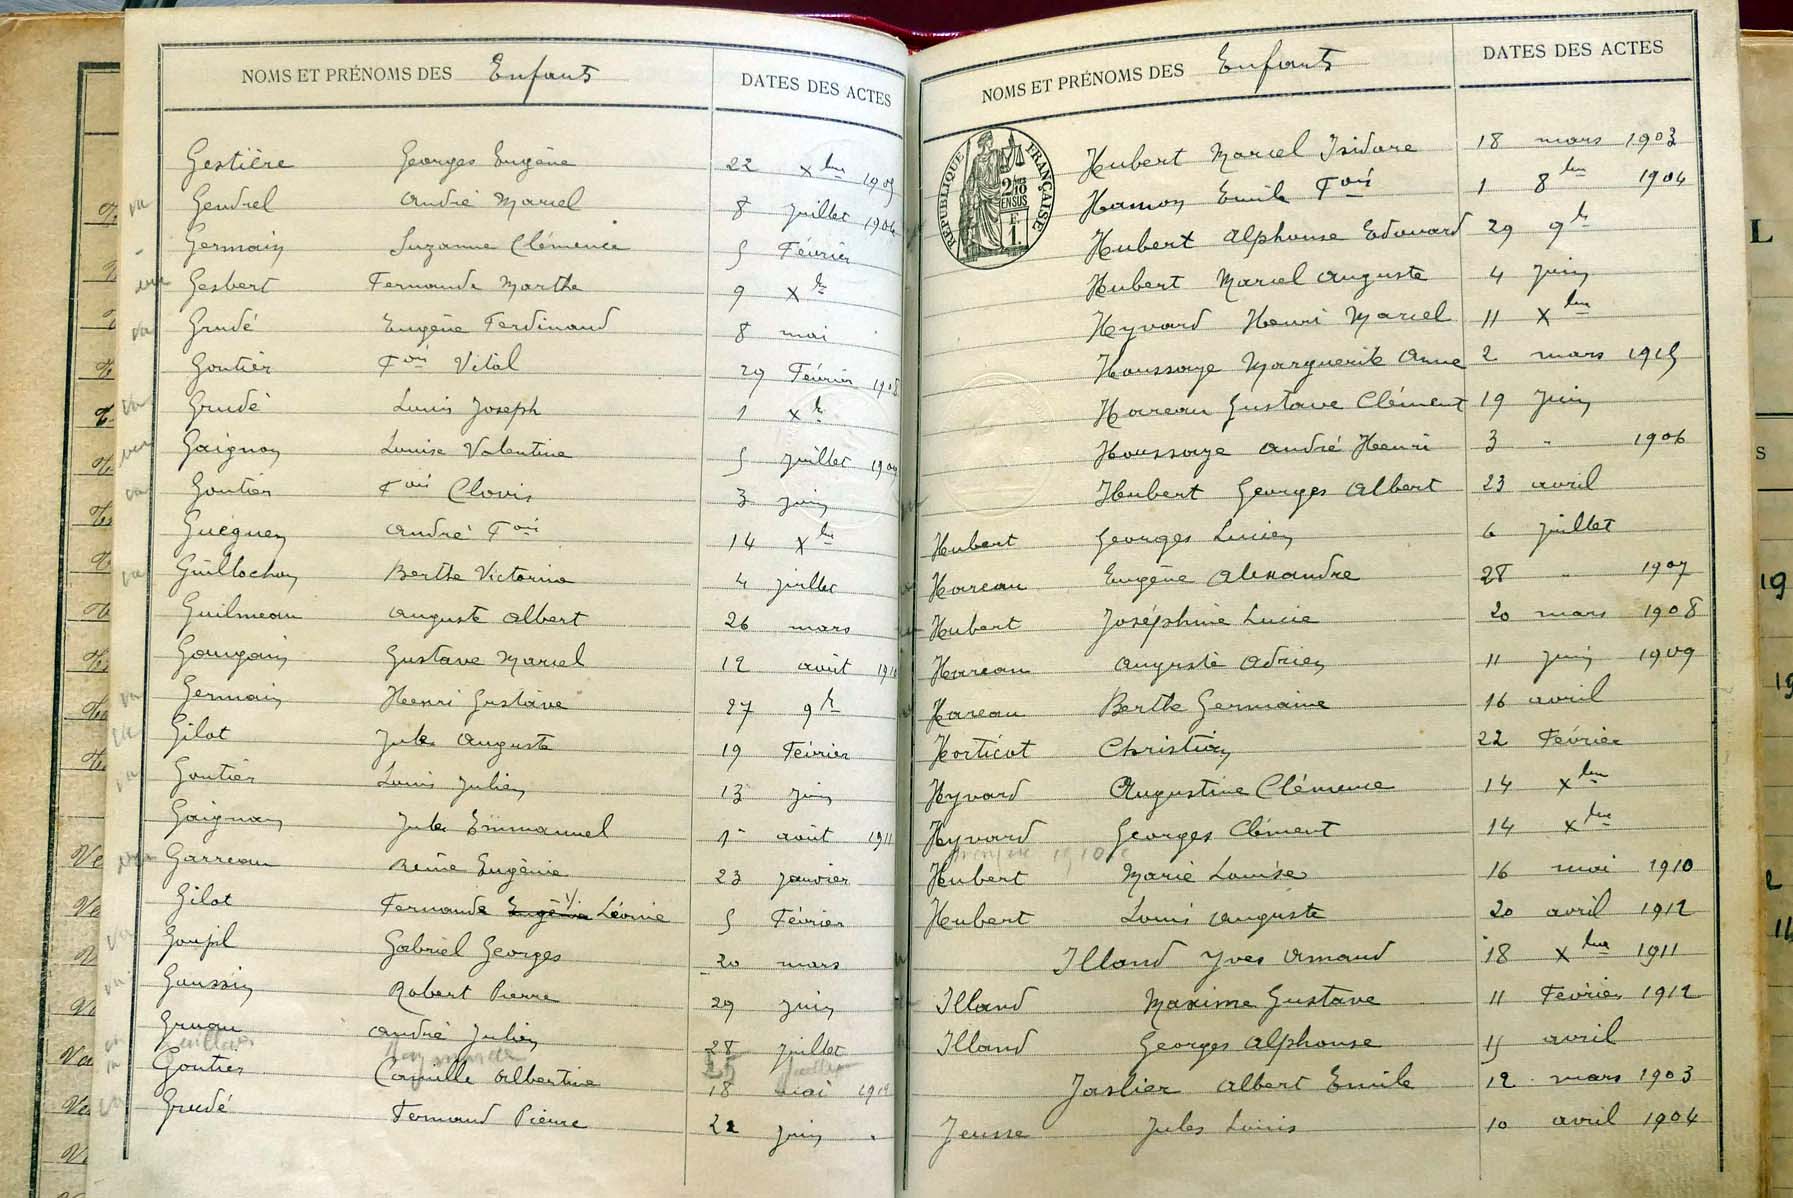 NOMS ET PRÉNOMS DES Enfants DATES DES ACTES
Gestière Georges Eugène 22 Xbre 1905
Gendrel André Marcel 8 juillet 1906
Germain Suzanne Clémence 5 Février
Gesbert Fernande Marthe 9 Xbre
Grudé Eugène Ferdinand 8 mai
Goutier Fois Vital 29 Février 1908
Grudé Louis Joseph 1 Xbre
Gaignon Louise Valentine 5 juillet 1909
Goutier Fois Clovis 3 juin
Guéguen André Fois 14 Xbre
Guillochon Berthe Victorine 4 juillet
Guilmeau Auguste Albert 26 mars
Gougain Gustave Marcel 12 août 1910
Germain Henri Gustave 27 9bre
Gilot Jules Auguste 19 Février
Goutier Louis Julien 13 juin
Gaignon Jules Emmanuel 1er août 1911
Garreau Reine Eugénie 23 janvier
Gilot Fernande Eugénie Léonie 5 Février
Goupil Gabriel Georges 20 mars
Goussin Robert Pierre 29 juin
Gruau André Julien 28 juillet
Goutier Camille Albertine 18 mai 1912
Grudé Fernand Pierre 22 juin
NOMS ET PRÉNOMS DES Enfants DATES DES ACTES
RÉPUBLIQUE FRANÇAISE
2/10 EN SUS
F.
1.
Hubert Marcel Isidore 18 mars 1903
Hamon Emile Fois 1 8bre 1904
Hubert Alphonse Edouard 29 9bre
Hubert Marcel Auguste 4 juin
Heyvard Henri Marcel 11 Xbre
Houssaye Marguerite Anne 2 mars 1905
Hareau Gustave Clément 19 juin
Houssaye André Henri 3 " 1906
Hubert Georges Albert 23 avril
Hubert Georges Lucien 6 juillet
Hareau Eugène Alexandre 28 " 1907
Hubert Joséphine Lucie 20 mars 1908
Hareau Auguste Adrien 11 juin 1909
Hareau Berthe Germaine 16 avril
Horticot Christian 22 Février
Heyvard Augustine Clémence 14 Xbre
Heyvard Georges Clément 14 Xbre
Hubert Marie Louise 16 mai 1910
Hubert Louis Auguste 20 avril 1912
Illand Yves Armand 18 Xbre 1911
Illand Maxime Gustave 11 Février 1912
Illand Georges Alphonse 15 avril
Jaslier Albert Emile 12 mars 1903
Jeusse Jules Louis 10 avril 1904